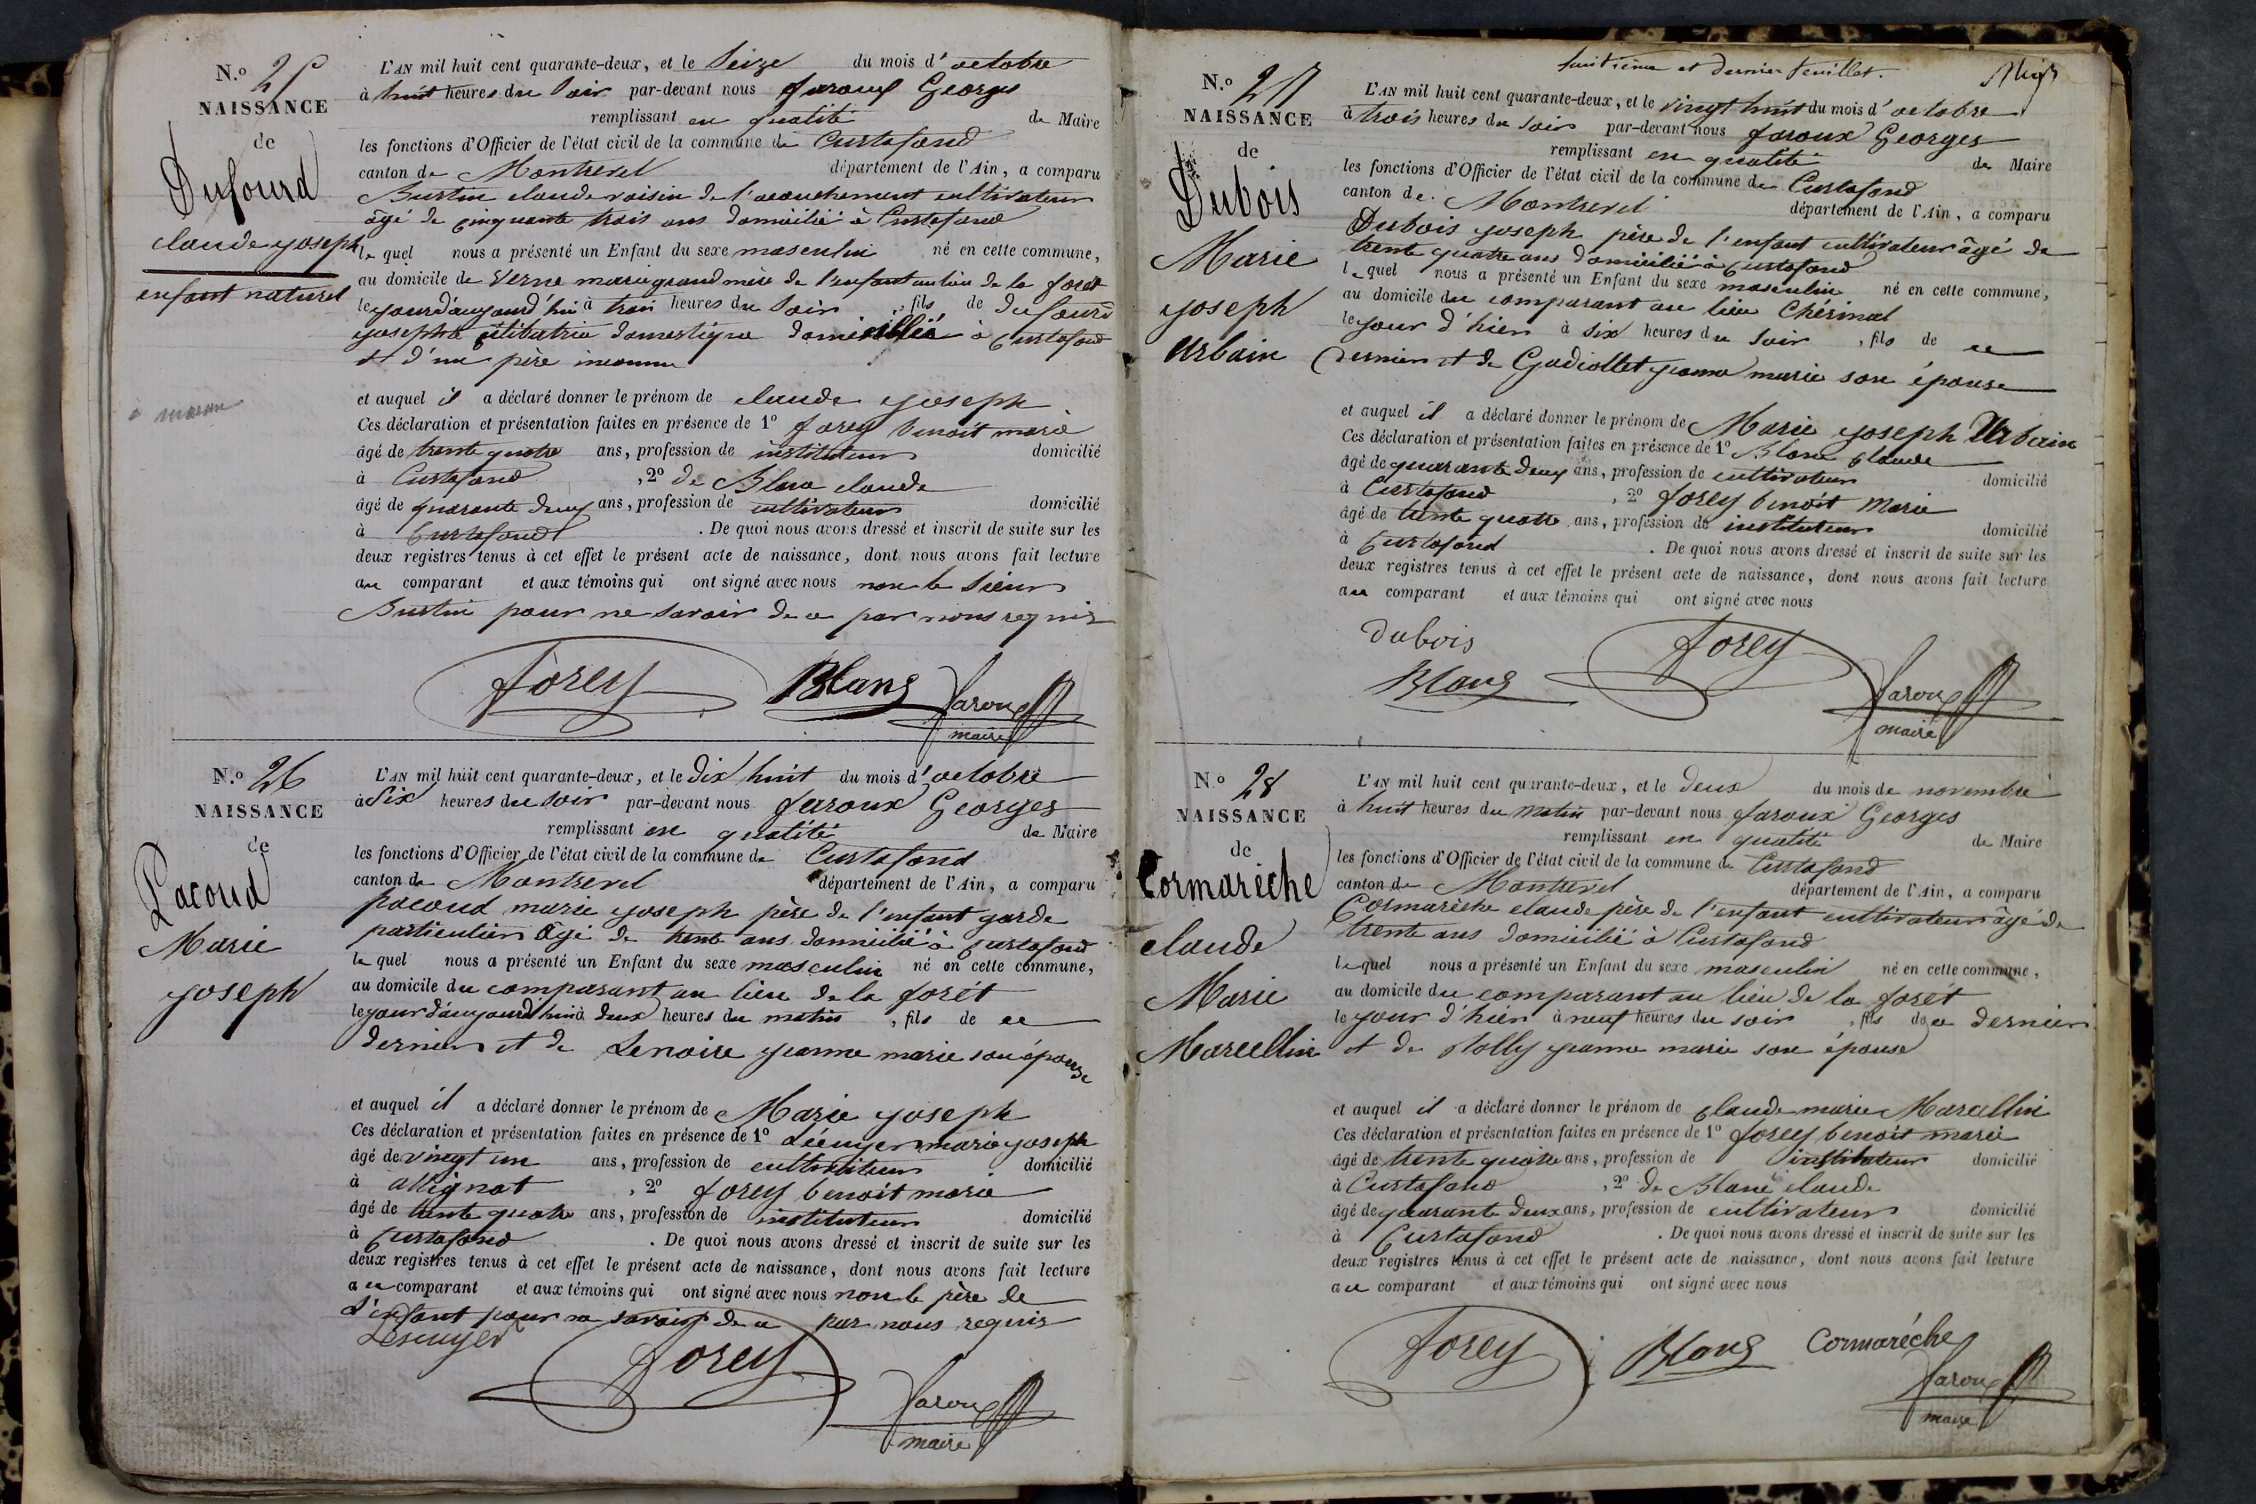 N.º 25
NAISSANCE
de
Dufourd
claude joseph
enfant naturel
L'AN mil huit cent quarante-deux, et le Seize du mois d' octobre
à huit heures du Soir par-devant nous faroux Georges
remplissant en qualité de Maire
les fonctions d'Officier de l'état civil de la commune de Curtafond
canton de Montrevel département de l'Ain, a comparu
Burtin claude voisin de l'acouchement cultivateur
âgé de cinquante trois ans domicilié à Curtafond
le quel nous a présenté un Enfant du sexe masculin né en cette commune,
au domicile de Verne marie grand mère de l'enfant au lieu de la forêt
le jourd'aujourd'hui à trois heures du Soir, fils de dufourd
josephte célibatrie domestique domiciliée à Curtafond
et d'un père inconnu
et auquel il a déclaré donner le prénom de claude joseph
Ces déclaration et présentation faites en présence de 1º forey benoit marie
âgé de trente quatre ans, profession de instituteur domicilié
à Curtafond, 2º de Blanc claude
âgé de quarante deux ans, profession de cultivateur domicilié
à Curtafond. De quoi nous avons dressé et inscrit de suite sur les
deux registres tenus à cet effet le présent acte de naissance, dont nous avons fait lecture
au comparant et aux témoins qui ont signé avec nous non le Sieur
Burtin pour ne savoir de ce par nous requis
forey Blanc faroux
maire
N.º 26
NAISSANCE
de
Pacoud
Marie
joseph
L'AN mil huit cent quarante-deux, et le Dix huit du mois d' octobre
à Six heures du soir par-devant nous faroux Georges
remplissant en qualité de Maire
les fonctions d'Officier de l'état civil de la commune de Curtafond
canton de Montrevel département de l'Ain, a comparu
pacoud marie joseph père de l'enfant garde
particulier âgé de trente ans domicilié à Curtafond
le quel nous a présenté un Enfant du sexe masculin né en cette commune,
au domicile du comparant au lieu de la forêt
le jour d'aujourd'hui à deux heures du matin, fils de ce
dernier et de Lenoire jeanne marie son épouse
et auquel il a déclaré donner le prénom de Marie joseph
Ces déclaration et présentation faites en présence de 1º Lécuyer marie joseph
âgé de vingt un ans, profession de cultivateur domicilié
à attignat, 2º forey benoit marie
âgé de trente quatre ans, profession de instituteur domicilié
à Curtafond. De quoi nous avons dressé et inscrit de suite sur les
deux registres tenus à cet effet le présent acte de naissance, dont nous avons fait lecture
au comparant et aux témoins qui ont signé avec nous non le père de
L'enfant pour ne savoir de ce par nous requis
Lécuyer forey faroux
maire
huitième et dernier feuillet.
N.º 27
NAISSANCE
de
Dubois
Marie
joseph
Urbain
L'AN mil huit cent quarante-deux, et le vingt huit du mois d' octobre
à trois heures du soir par-devant nous faroux Georges
remplissant en qualité de Maire
les fonctions d'Officier de l'état civil de la commune de Curtafond
canton de Montrevel département de l'Ain, a comparu
Dubois joseph père de l'enfant cultivateur âgé de
trente quatre ans domicilié à Curtafond
le quel nous a présenté un Enfant du sexe masculin né en cette commune,
au domicile du comparant au lieu Chérinal
le jour d'hier à six heures du soir, fils de ce
dernier et de Gadiollet jeanne marie son épouse
et auquel il a déclaré donner le prénom de Marie joseph Urbain
Ces déclaration et présentation faites en présence de 1º Blanc claude
âgé de quarante deux ans, profession de cultivateur domicilié
à Curtafond, 2º forey benoit Marie
âgé de trente quatre ans, profession de instituteur domicilié
à Curtafond. De quoi nous avons dressé et inscrit de suite sur les
deux registres tenus à cet effet le présent acte de naissance, dont nous avons fait lecture
au comparant et aux témoins qui ont signé avec nous
dubois forey
Blanc faroux
maire
N.º 28
NAISSANCE
de
Cormarèche
claude
Marie
Marcellin
L'AN mil huit cent quarante-deux, et le deux du mois de novembre
à huit heures du matin par-devant nous faroux Georges
remplissant en qualité de Maire
les fonctions d'Officier de l'état civil de la commune de Curtafond
canton de Montrevel département de l'Ain, a comparu
Cormarèche claude père de l'enfant cultivateur âgé de
trente ans domicilié à Curtafond
le quel nous a présenté un Enfant du sexe masculin né en cette commune,
au domicile du comparant au lieu de la forêt
le jour d'hier à neuf heures du soir, fils de ce dernier
et de jeanne marie son épouse
et auquel il a déclaré donner le prénom de Claude marie Marcellin
Ces déclaration et présentation faites en présence de 1º forey benoit marie
âgé de trente quatre ans, profession de instituteur domicilié
à Curtafond, 2º de Blanc claude
âgé de quarante deux ans, profession de cultivateur domicilié
à Curtafond. De quoi nous avons dressé et inscrit de suite sur les
deux registres tenus à cet effet le présent acte de naissance, dont nous avons fait lecture
au comparant et aux témoins qui ont signé avec nous
forey Blanc Cormaréche
faroux
maire